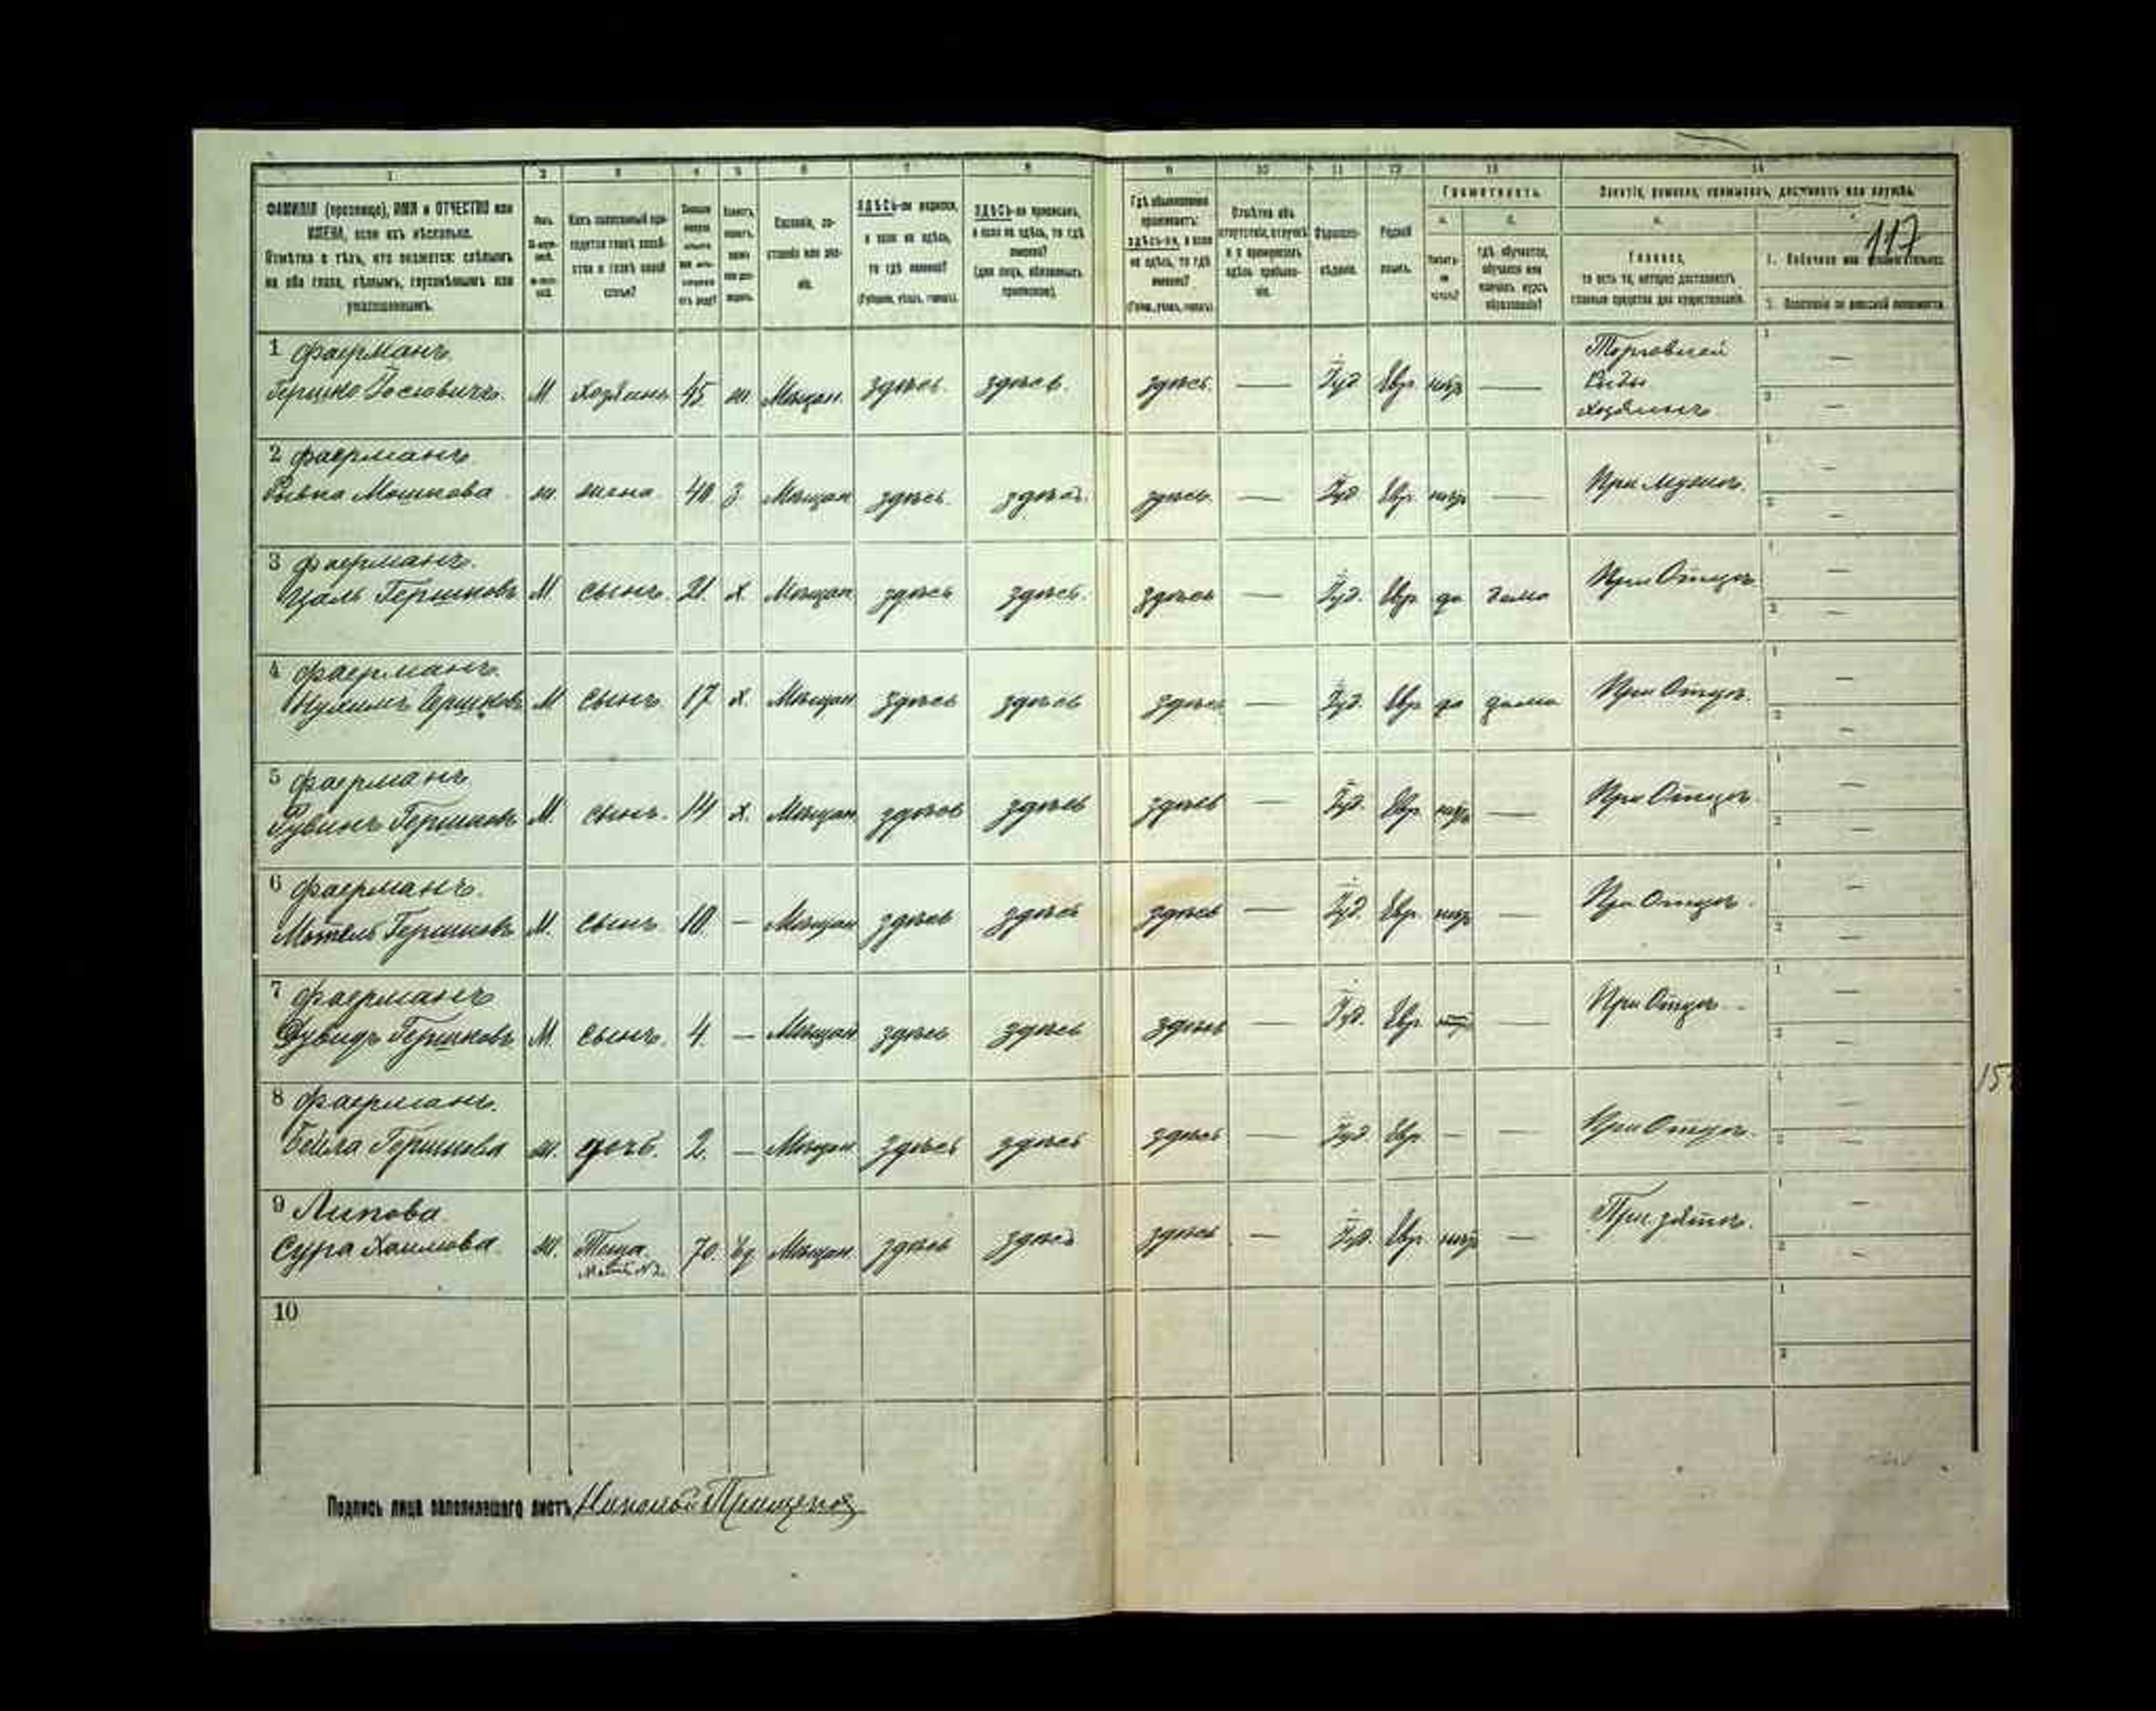 1 2 3 4 5 6 7 8 9 10 11 12 13 14
117
ФАМИЛІЯ (прозвище), ИМЯ и ОТЧЕСТВО или
ИМЕНА, если ихъ нѣсколько.
Отмѣтка о тѣхъ, кто окажется: слѣпымъ
на оба глаза, нѣмымъ, глухонѣмымъ или
умалишеннымъ.
Какъ записанный при-
ходится главѣ хозяй-
ства и главѣ своей
семьи?
Сословіе, со-
стояніе или зва-
ніе.
ЗДѢСЬ-ли родился,
а если не здѣсь,
то гдѣ именно?
(Губернія, уѣздъ, городъ).
ЗДѢСЬ-ли приписанъ,
а если не здѣсь, то гдѣ
именно?
(для лицъ, обязанныхъ
припискою).
Гдѣ обыкновенно
проживаетъ:
здѣсь-ли, а если
не здѣсь, то гдѣ
именно?
(Губ., уѣздъ, городъ).
Отмѣтка объ
отсутствіи, отлучкѣ
и о временномъ
здѣсь пребыва-
ніи.
Вѣроиспо-
вѣданіе.
Родной
языкъ.
Грамотность.
а. б.
гдѣ обучается,
обучался или
кончилъ курсъ
образованія?
Занятіе, ремесло, промыселъ, должность или служба.
Главное,
то есть то, которое доставляетъ
главныя средства для существованія.
1. Побочное или вспомогательное.
2. Положеніе по воинской повинности.
1 Фаерманъ
Гершко Іосіовичъ. М Хозяинъ 45 ж. Мѣщан. здѣсь здѣсь. здѣсь. — Іуд Евр. нѣтъ —
Торговлей
Рыбы
Хозяинъ
2 Фаерманъ
Рывка Мошкова ж. жена. 40 З. Мѣщан здѣсь. здѣсь. здѣсь. — Іуд Евр. нѣтъ — При мужѣ.
3 Фаерманъ.
Цаль Гершковъ М сынъ. 21. х. Мѣщан здѣсь здѣсь. здѣсь — Іуд. Евр. да дома При Отцѣ
4 Фаерманъ.
Нухимъ Гершковъ М сынъ. 17 х. Мѣщан здѣсь здѣсь здѣсь — Іуд. Евр да дома При Отцѣ.
5 Фаерманъ
Рувинъ Гершковъ М. сынъ. 14 х. Мѣщан здѣсь здѣсь здѣсь — Іуд. Евр. нѣтъ — При Отцѣ.
6 Фаерманъ.
Мотель Гершковъ М. сынъ. 10. — Мѣщан здѣсь здѣсь здѣсь — Іуд. Евр. нѣтъ — При Отцѣ.
7 Фаерманъ
Дувидъ Гершковъ М. сынъ. 4. — Мѣщан здѣсь здѣсь здѣсь — Іуд. Евр. нѣтъ — При Отцѣ.
8 Фаерманъ.
Бейла Гершкова ж. дочь. 2. — Мѣщан здѣсь здѣсь здѣсь — Іуд. Евр. — — При Отцѣ.
9 Липова
Сура Хаимова. ж. Теща. 70. Вд Мѣщан. здѣсь здѣсь здѣсь — Іуд. Евр. нѣтъ — При зятѣ.
Мать №2.
10
15
Подпись лица заполнившаго листъ Николай Прищепов